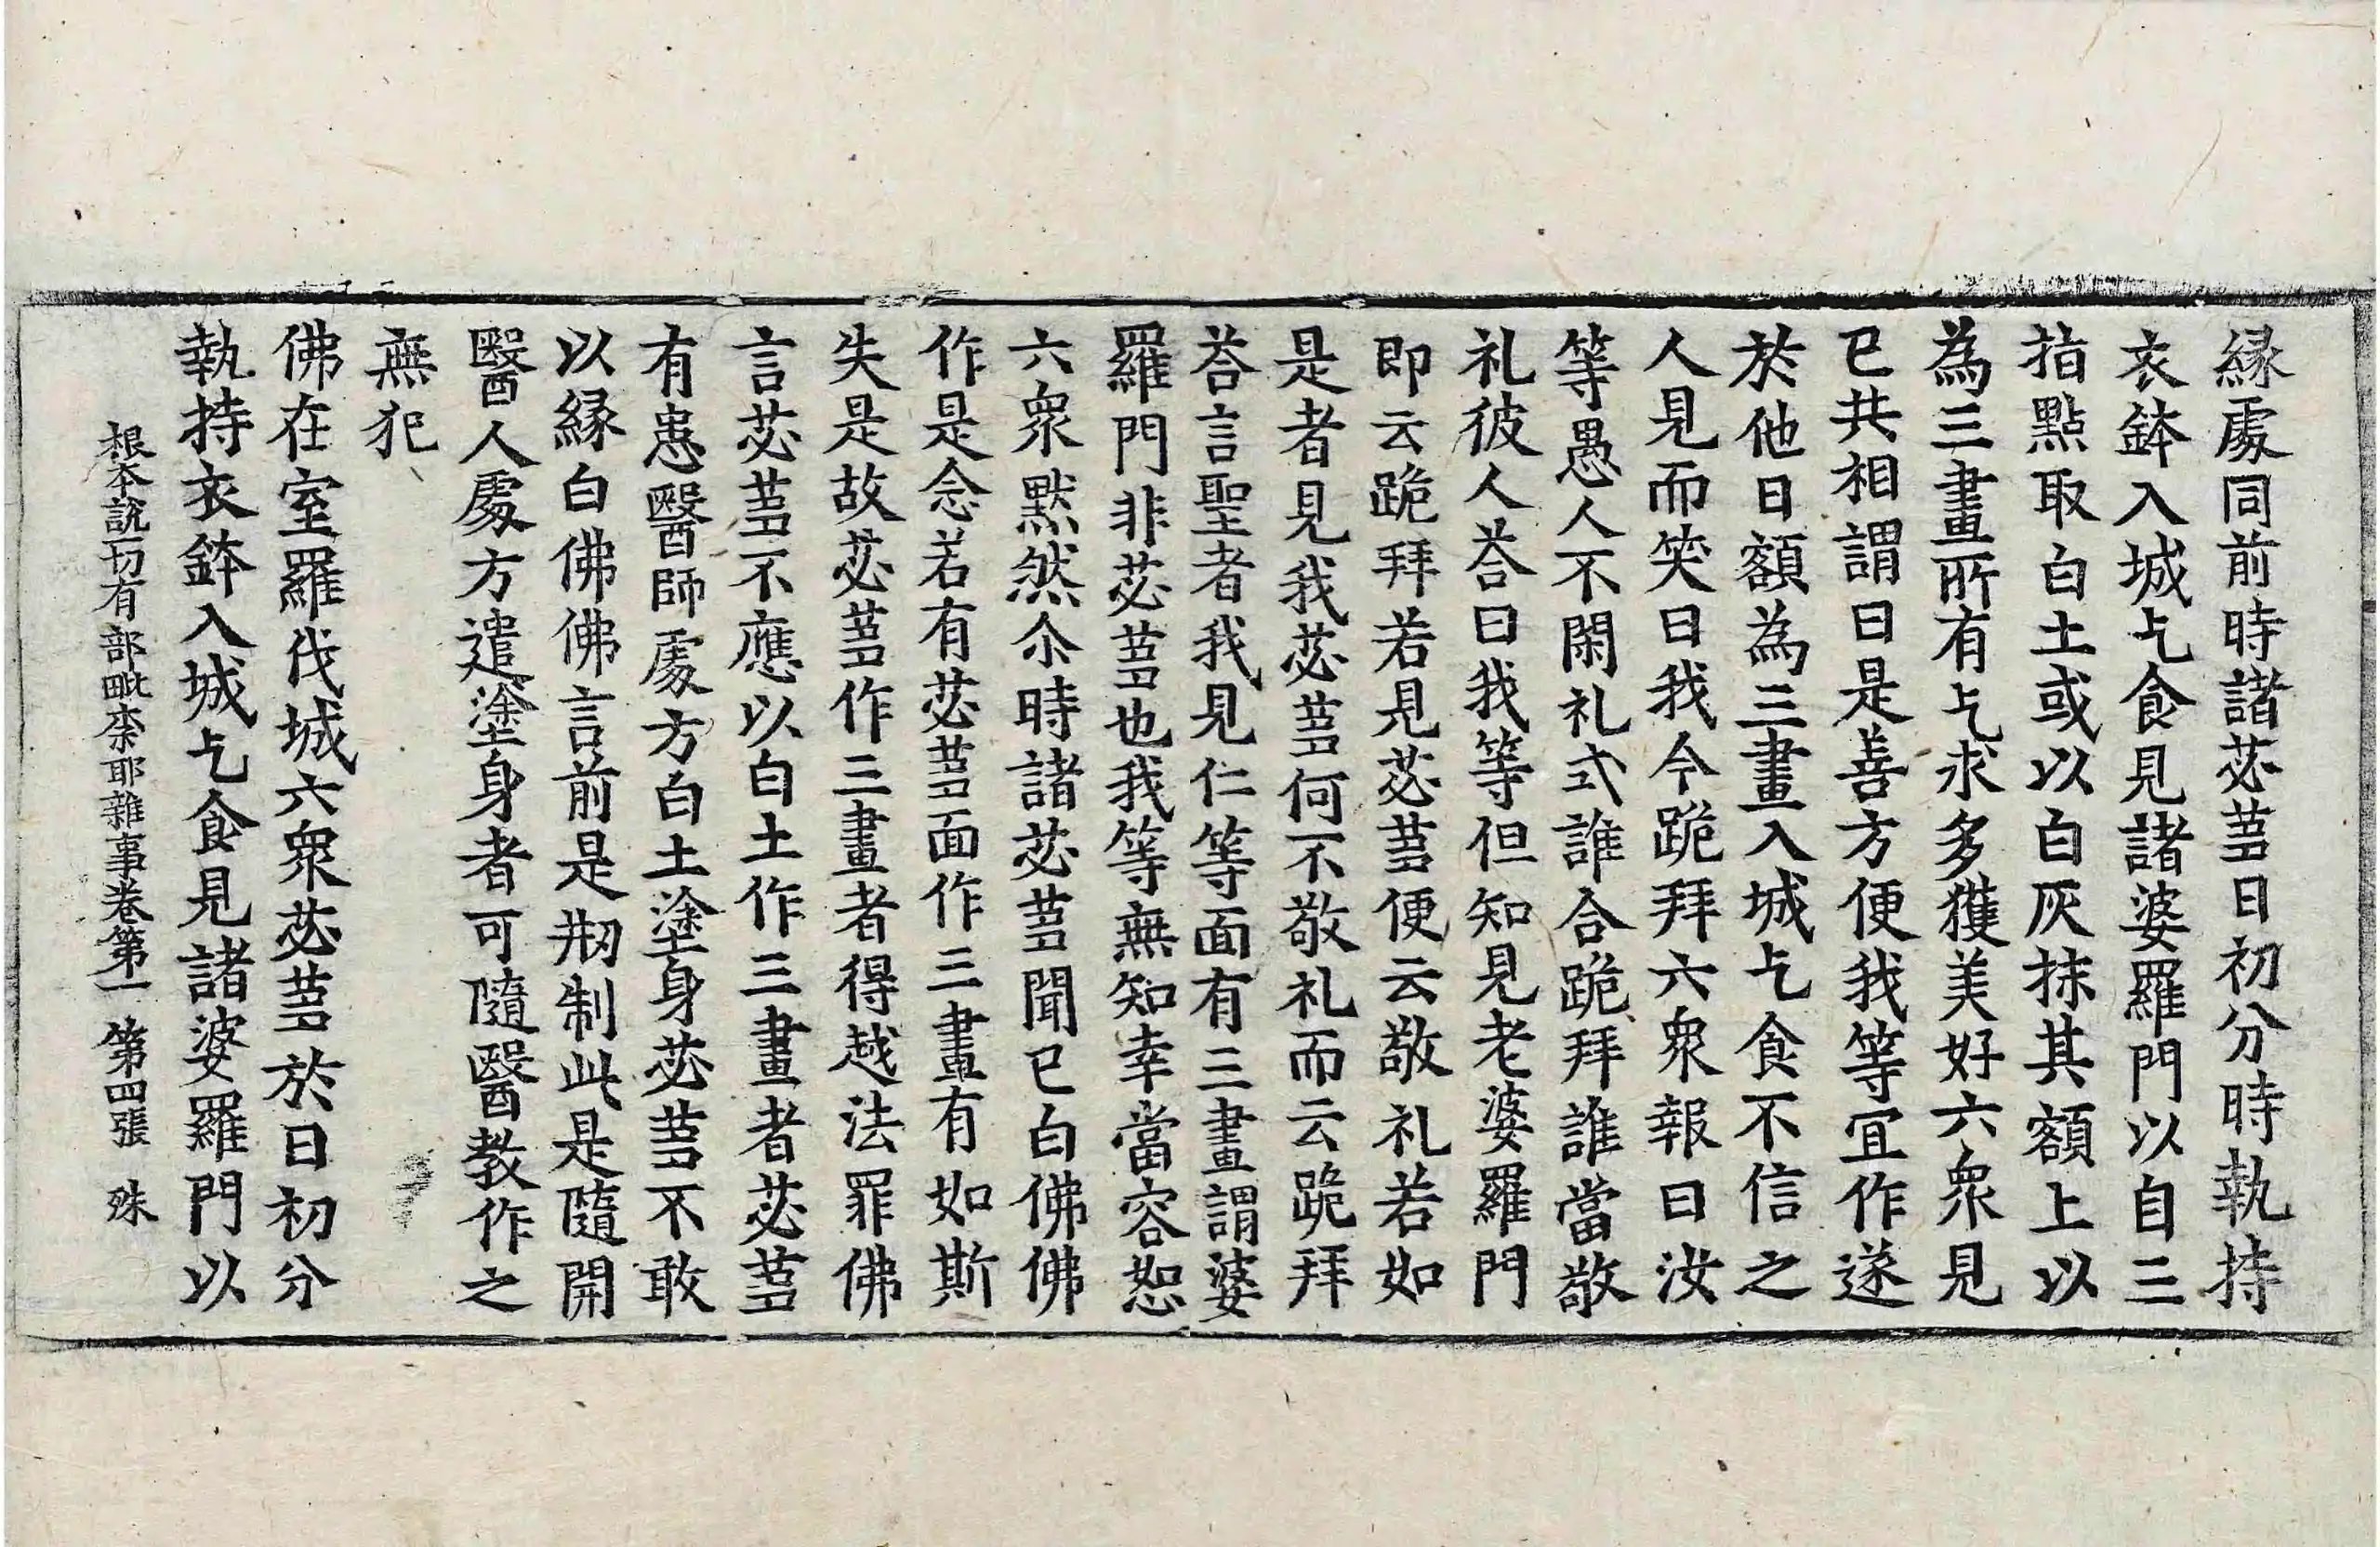 縁處同前時諸苾蒭日初分時執持
衣鉢入城乞食見諸婆羅門以自三
指點取白土或以白灰抹其額上以
為三畫所有乞求多獲美好六衆見
已共相謂曰是善方便我等宜作遂
於他日額為三畫入城乞食不信之
人見而笑曰我今跪拜六衆報曰汝
等愚人不閑礼式誰合跪拜誰當敬
礼彼人荅曰我等但知見老婆羅門
即云跪拜若見苾蒭便云敬礼若如
是者見我苾蒭何不敬礼而云跪拜
荅言聖者我見仁等面有三畫謂婆
羅門非苾蒭也我等無知幸當容恕
六衆黙然尒時諸苾蒭聞已白佛佛
作是念若有苾蒭面作三畫有如斯
失是故苾蒭作三畫者得越法罪佛
言苾蒭不應以白土作三畫者苾蒭
有患醫師處方白土塗身苾蒭不敢
以縁白佛佛言前是剏制此是隨開
醫人處方遣塗身者可隨醫教作之
無犯
佛在室羅伐城六衆苾蒭於日初分
執持衣鉢入城乞食見諸婆羅門以
根本說一切有部毗柰耶雜事卷第一 第四張 殊